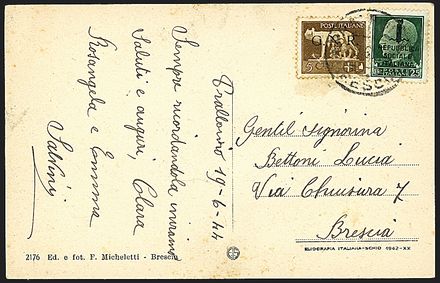 Frattarino 19-6-44
Sempre ricordandola inviamo
Saluti e auguri, Clara
Rosangela e Emma
Salvini
POSTE ITALIANE
REPUBBLICA
SOCIALE
ITALIANA
Gentil Signorina
Bettoni Lucia
Via Chiusura 7
Brescia
2176 Ed. e fot. F. Micheletti - Brescia
ELIOGRAFIA ITALIANA-SCHIO 1942-XX